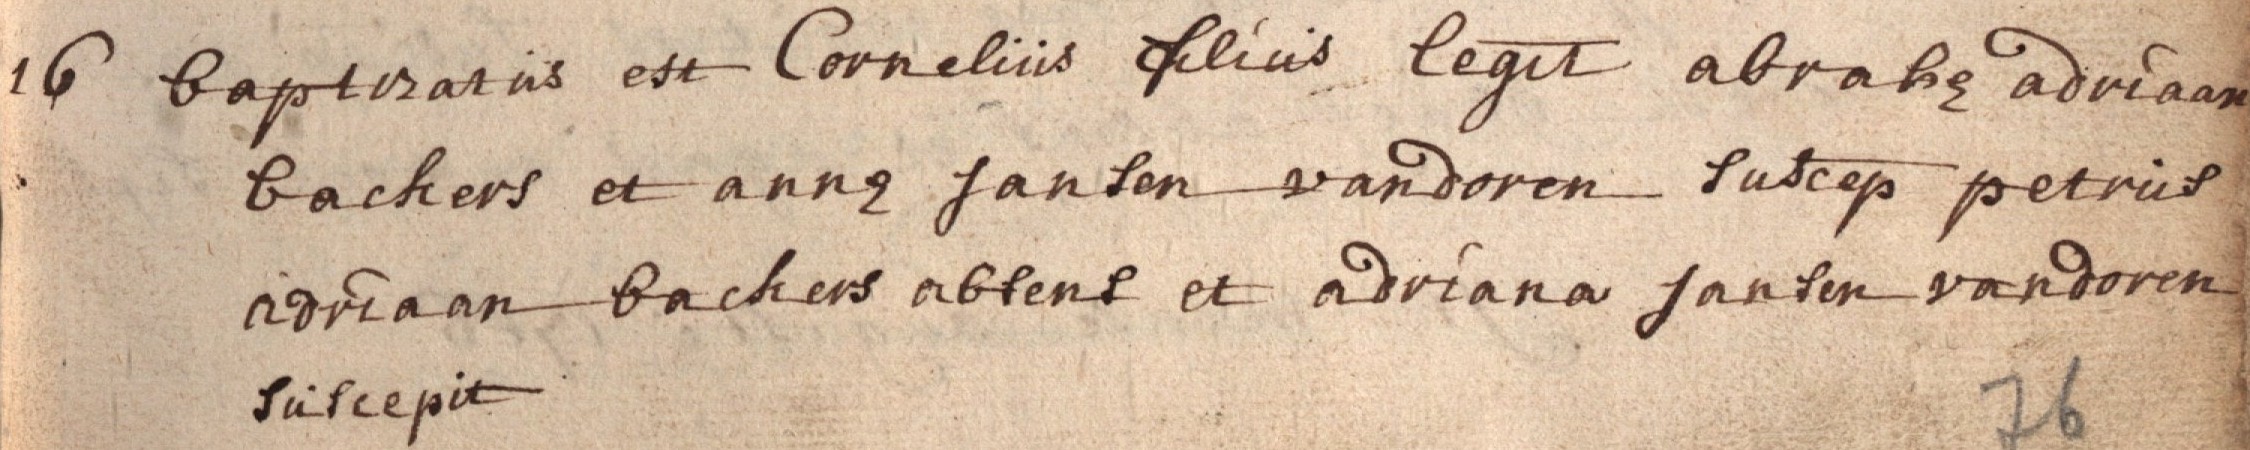 16 baptizatus est Cornelius filius legit abrahę adriaan
backers et annę Jansen vandoren suscep petrus
adriaan backers absens et adriana Jansen vandoren
suscepit
76